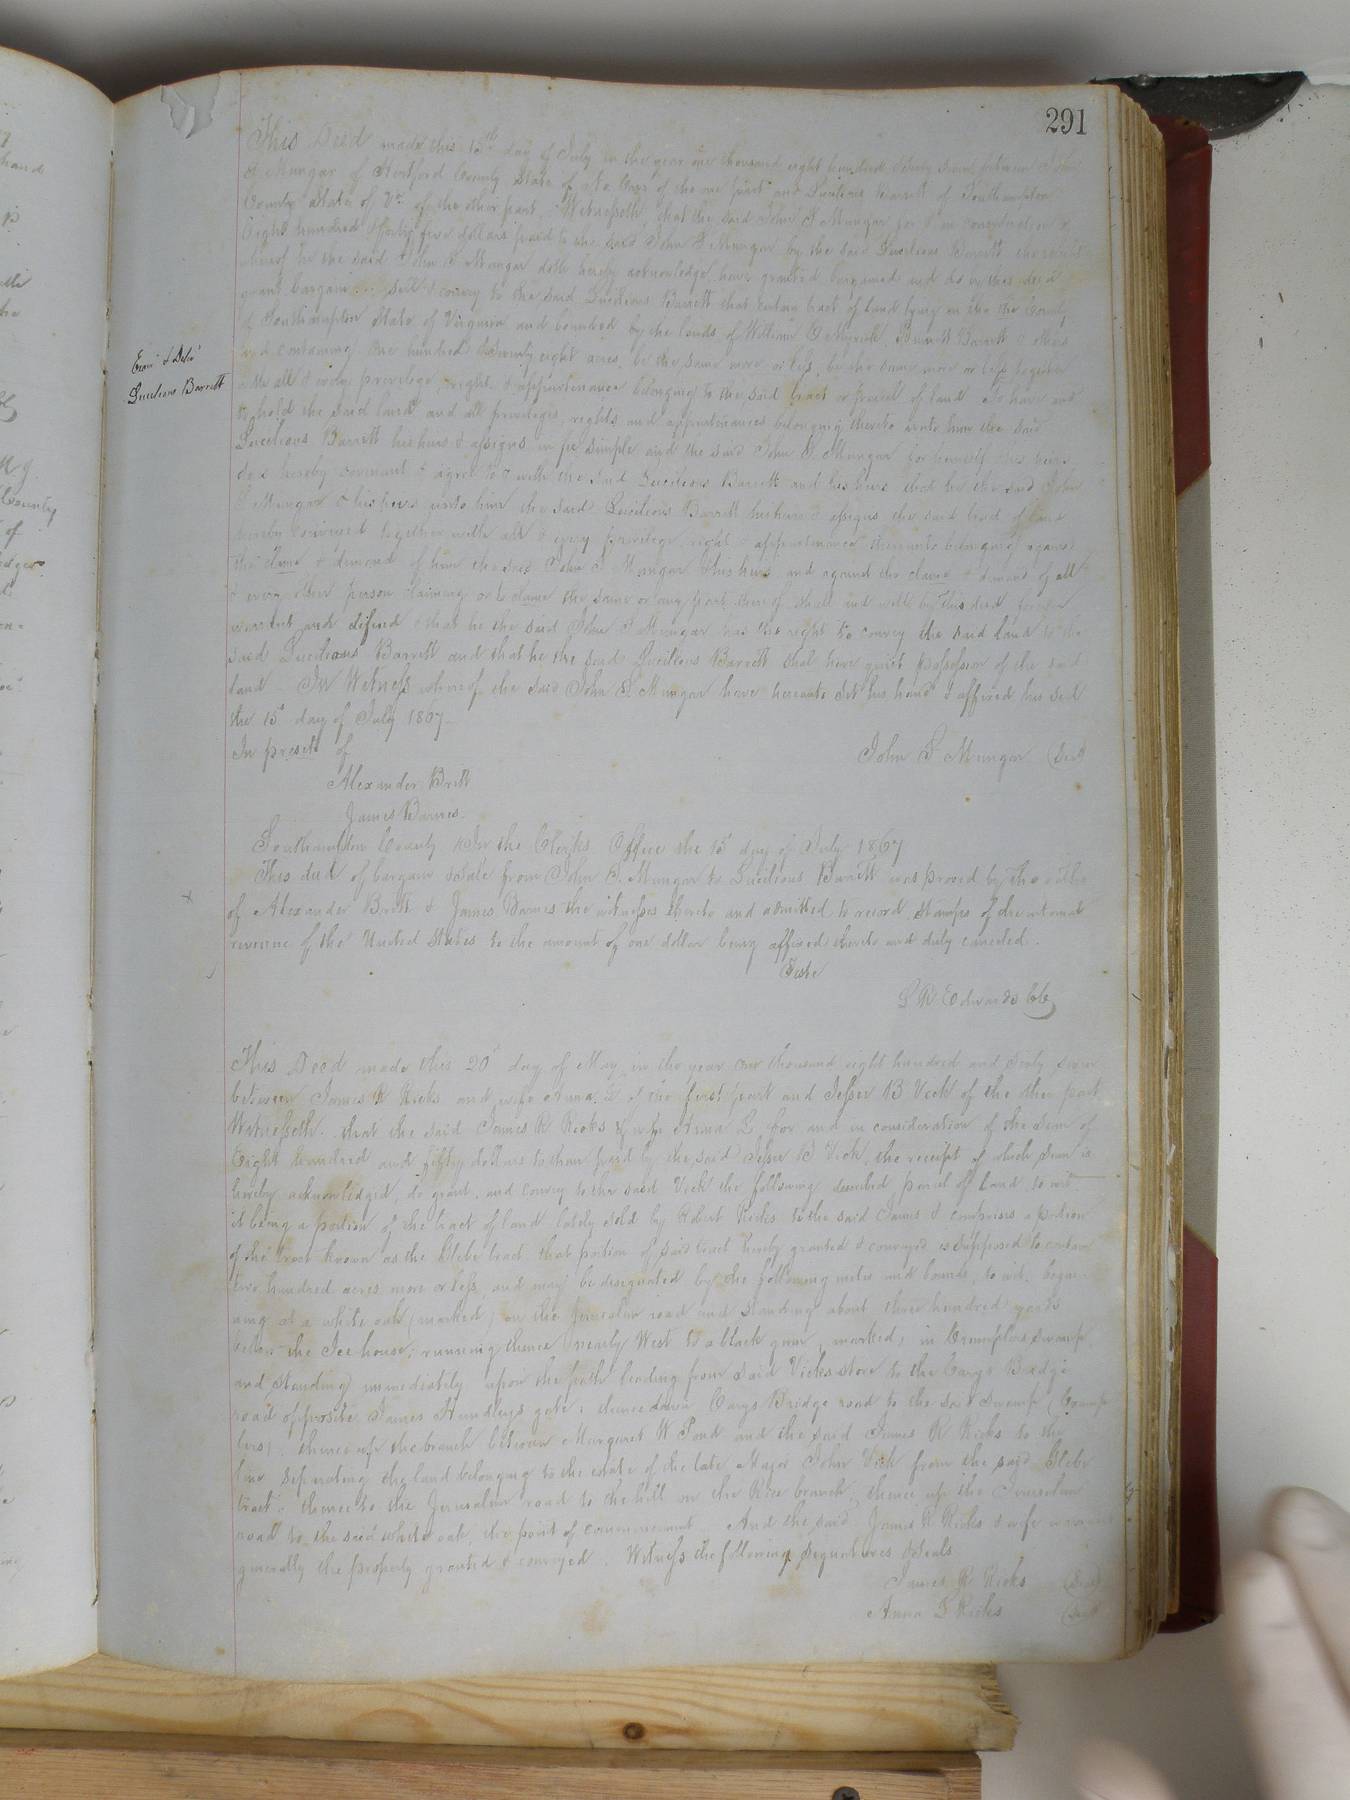 291
This Deed made this 15th day of July in the year one thousand eight hundred & sixty seven between John
S Mungar of Hertford County State of No Car of the one part and Lucilious Barrett of Southampton
County State of Va of the other part. Witnesseth, that the said John S Mungar for & in consideration of
Eight hundred & forty five dollars paid to the said John S Mungar by the said Lucilious Barrett the receipt
whereof he the said John S Mungar doth hereby acknowledge, have granted bargained and do by this deed
grant bargain sell & convey to the said Lucilious Barrett that certain tract of land lying in the the County
of Southampton State of Virginia and bounded by the lands of William G Myrick, Barrett & others
and containing One hundred & twenty eight acres, be the same more or less, be the same more or less together
with all & every privilege right & appurtenance belonging to the said tract or parcel of land To have and
to hold the said land and all privileges, rights and appurtenances belonging thereto unto him the said
Lucilious Barrett his heirs & assigns in fee simple and the said John S. Mungar for himself his heirs
does hereby covenant & agree to & with the said Lucilious Barrett and his heirs that he the said John
S Mungar & his heirs unto him the said Lucilious Barrett his heirs & assigns the said tract of land
hereby conveyed together with all & every privilege right & appurtenance thereunto belonging against
the claim & demand of him the said John S Mungar & his heirs and against the claim & demand of all
& every other person claiming or to claim the same or any part thereof shall and will by this deed forever
warrant and defend & that he the said John S Mungar has the right to convey the said land to the
said Lucilious Barrett and that he the said Lucilious Barrett shall have quiet possession of the said
land In Witness whereof the said John S Mungar have hereunto set his hand & affixed his seal
the 15 day of July 1867
In presets of John S Mungar (Seal)
Alexander Britt
James Barnes.
Exd & Deld
Lucilious Barrett
Southampton County In the Clerks Office the 15 day of July 1867
This deed of bargain & sale from John S. Mungar to Lucilious Barrett was proved by the oaths
of Alexander Britt & James Barnes the witnesses thereto and admitted to record Stamps of the internal
revenue of the United States to the amount of one dollar being affixed thereto and duly canceled.
Teste
L R. Edwards Clk
This Deed made this 20 day of May in the year One thousand eight hundred and sixty seven
between James R Ricks and wife Anna. L of the first part and Jesser B Vick of the other part
Witnesseth. that the said James R Ricks & wife Anna L for and in consideration of the sum of
Eight hundred and fifty dollars to them paid by the said Jesser B Vick, the receipt of which sum is
hereby acknowledged, do grant, and convey to the said Vick the following described parcel of land, to wit
it being a portion of the tract of land lately sold by Robert Ricks to the said James & comprises a portion
of the tract known as the Glebe tract. that portion of said tract hereby granted & conveyed is supposed to contain
two hundred acres more or less, and may be designated by the following metes and bounds, to wit, begin-
ning at a white oak (marked) on the Jerusalem road and standing about three hundred yards
below the Ice house; running thence nearly West to a black gum (marked) in Crumplers swamp
and standing immediately upon the path leading from said Vicks store to the Carys Bridge
road opposite James Hundleys gate; thence down Carys Bridge road to the said swamp (Crump
lers), thence up the branch between Margaret W Pond and the said James R Ricks to the
line separating the land belonging to the estate of the late Major John Vick from the said Glebe
tract; thence to the Jerusalem road to the hill on the Rice branch; thence up the Jerusalem
road to the said white oak, the point of commencement. And the said James R Ricks & wife warrant
generally the property granted & conveyed. Witness the following signatures & seals
James R Ricks (Seal)
Anna L Ricks (Seal)